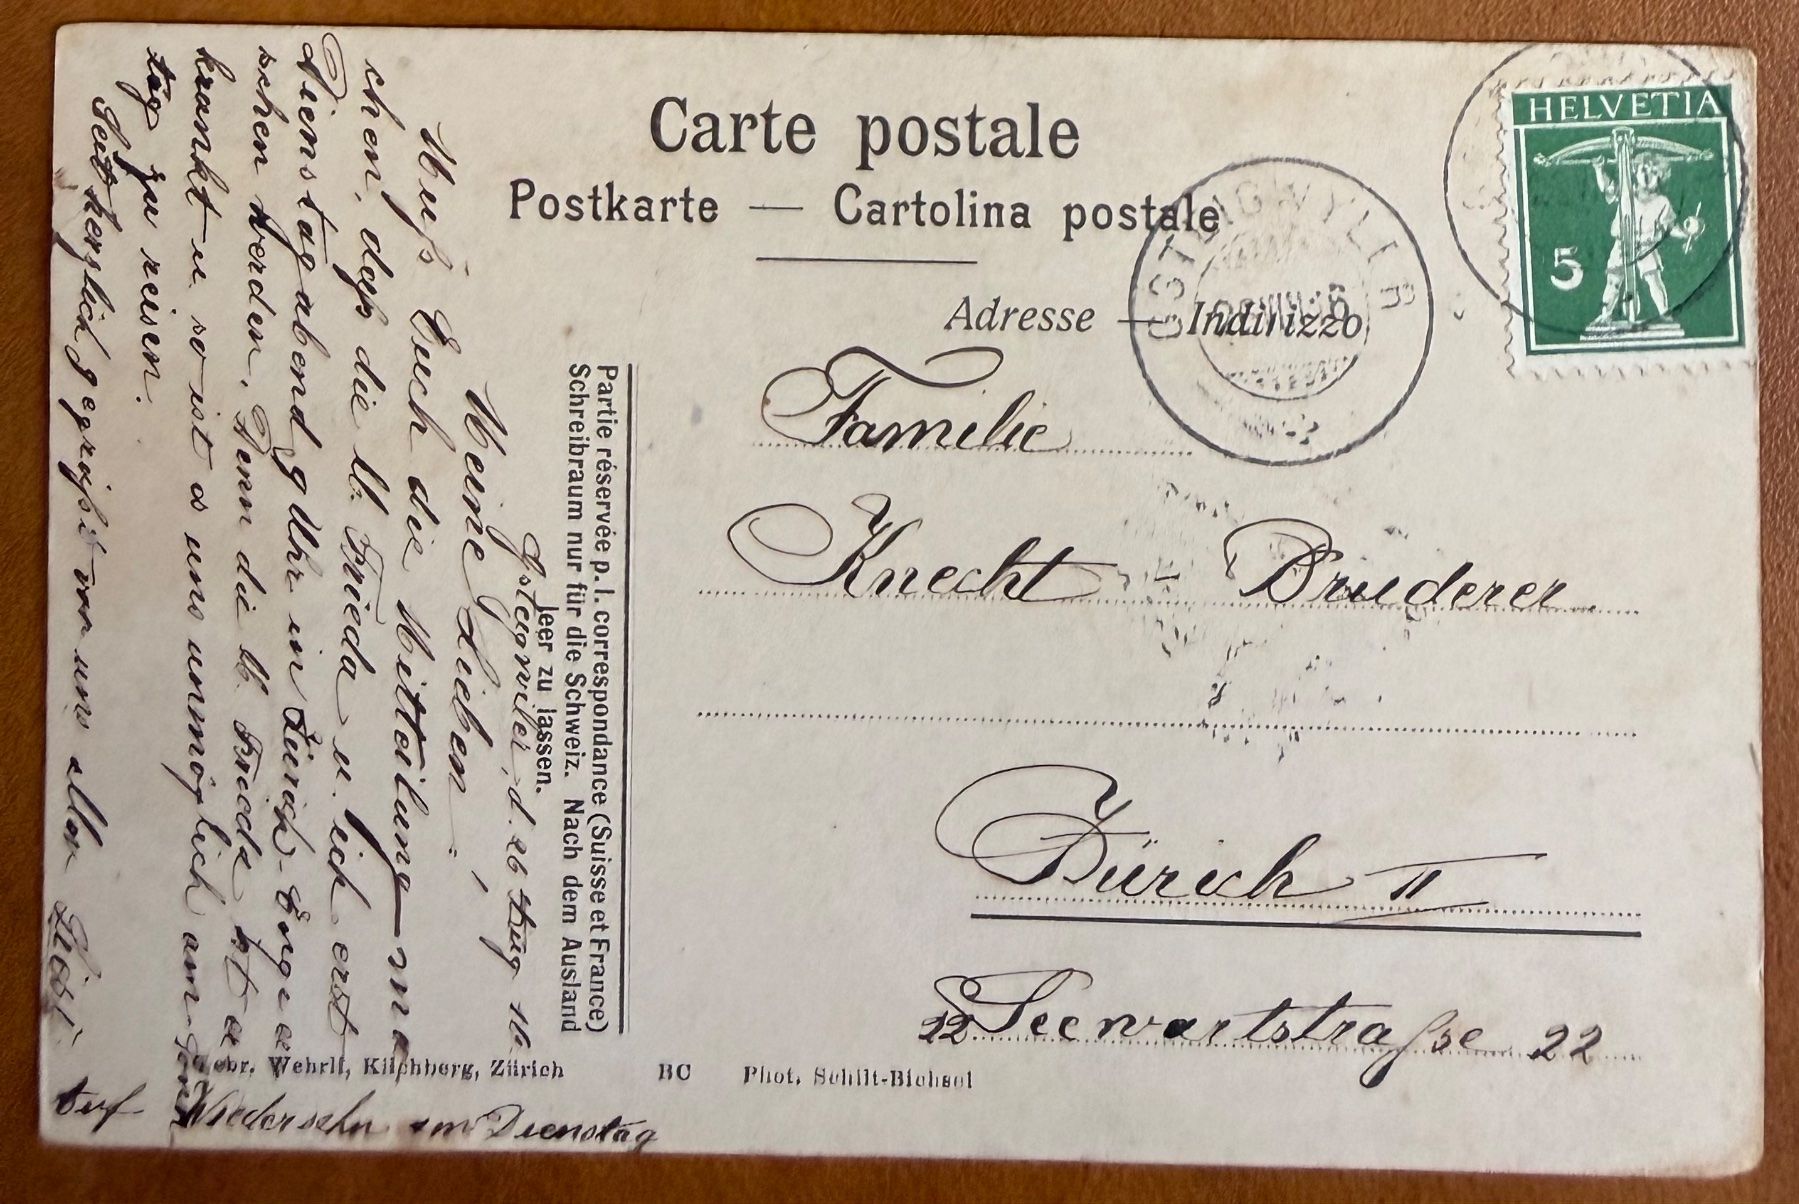 Carte postale
Postkarte — Cartolina postale
Adresse — Indirizzo
HELVETIA
5
GSTEIGWYLER
Familie
Knecht Bruderer
Zürich II
22 Seewartstraße 22
Partie réservée p. l. correspondance (Suisse et France)
Schreibraum nur für die Schweiz. Nach dem Ausland
leer zu lassen.
Gsteigwiler, d. 26 Aug
Meine Lieben!
Muß Euch die Mitteilung ma
chen, daß die lb. Frieda u. ich erst
Dienstag abend 9 Uhr in Zürich
sehen werden. Denn die lb. Frieda ist
krank u. so ist es uns unmöglich am
tag zu reisen.
Seit herzlich gegrüßt von uns allen
Auf Wiedersehn am Dienstag
Gebr. Wehrli, Kilchberg, Zürich
BC
Phot. Schilt-Bichsel